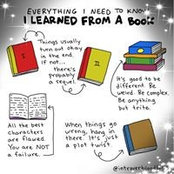 EVERYTHING I NEED TO KNOW
I LEARNED FROM A BOOK
Things usually
turn out okay
in the end.
if not...
there's
probably
a sequel.
I
II
It's good to be
different. Be
weird. Be complex.
Be anything
but trite.
All the best
characters
are flawed.
You are NOT
a failure.
When things go
wrong, hang in
there. It's just
a plot twist.